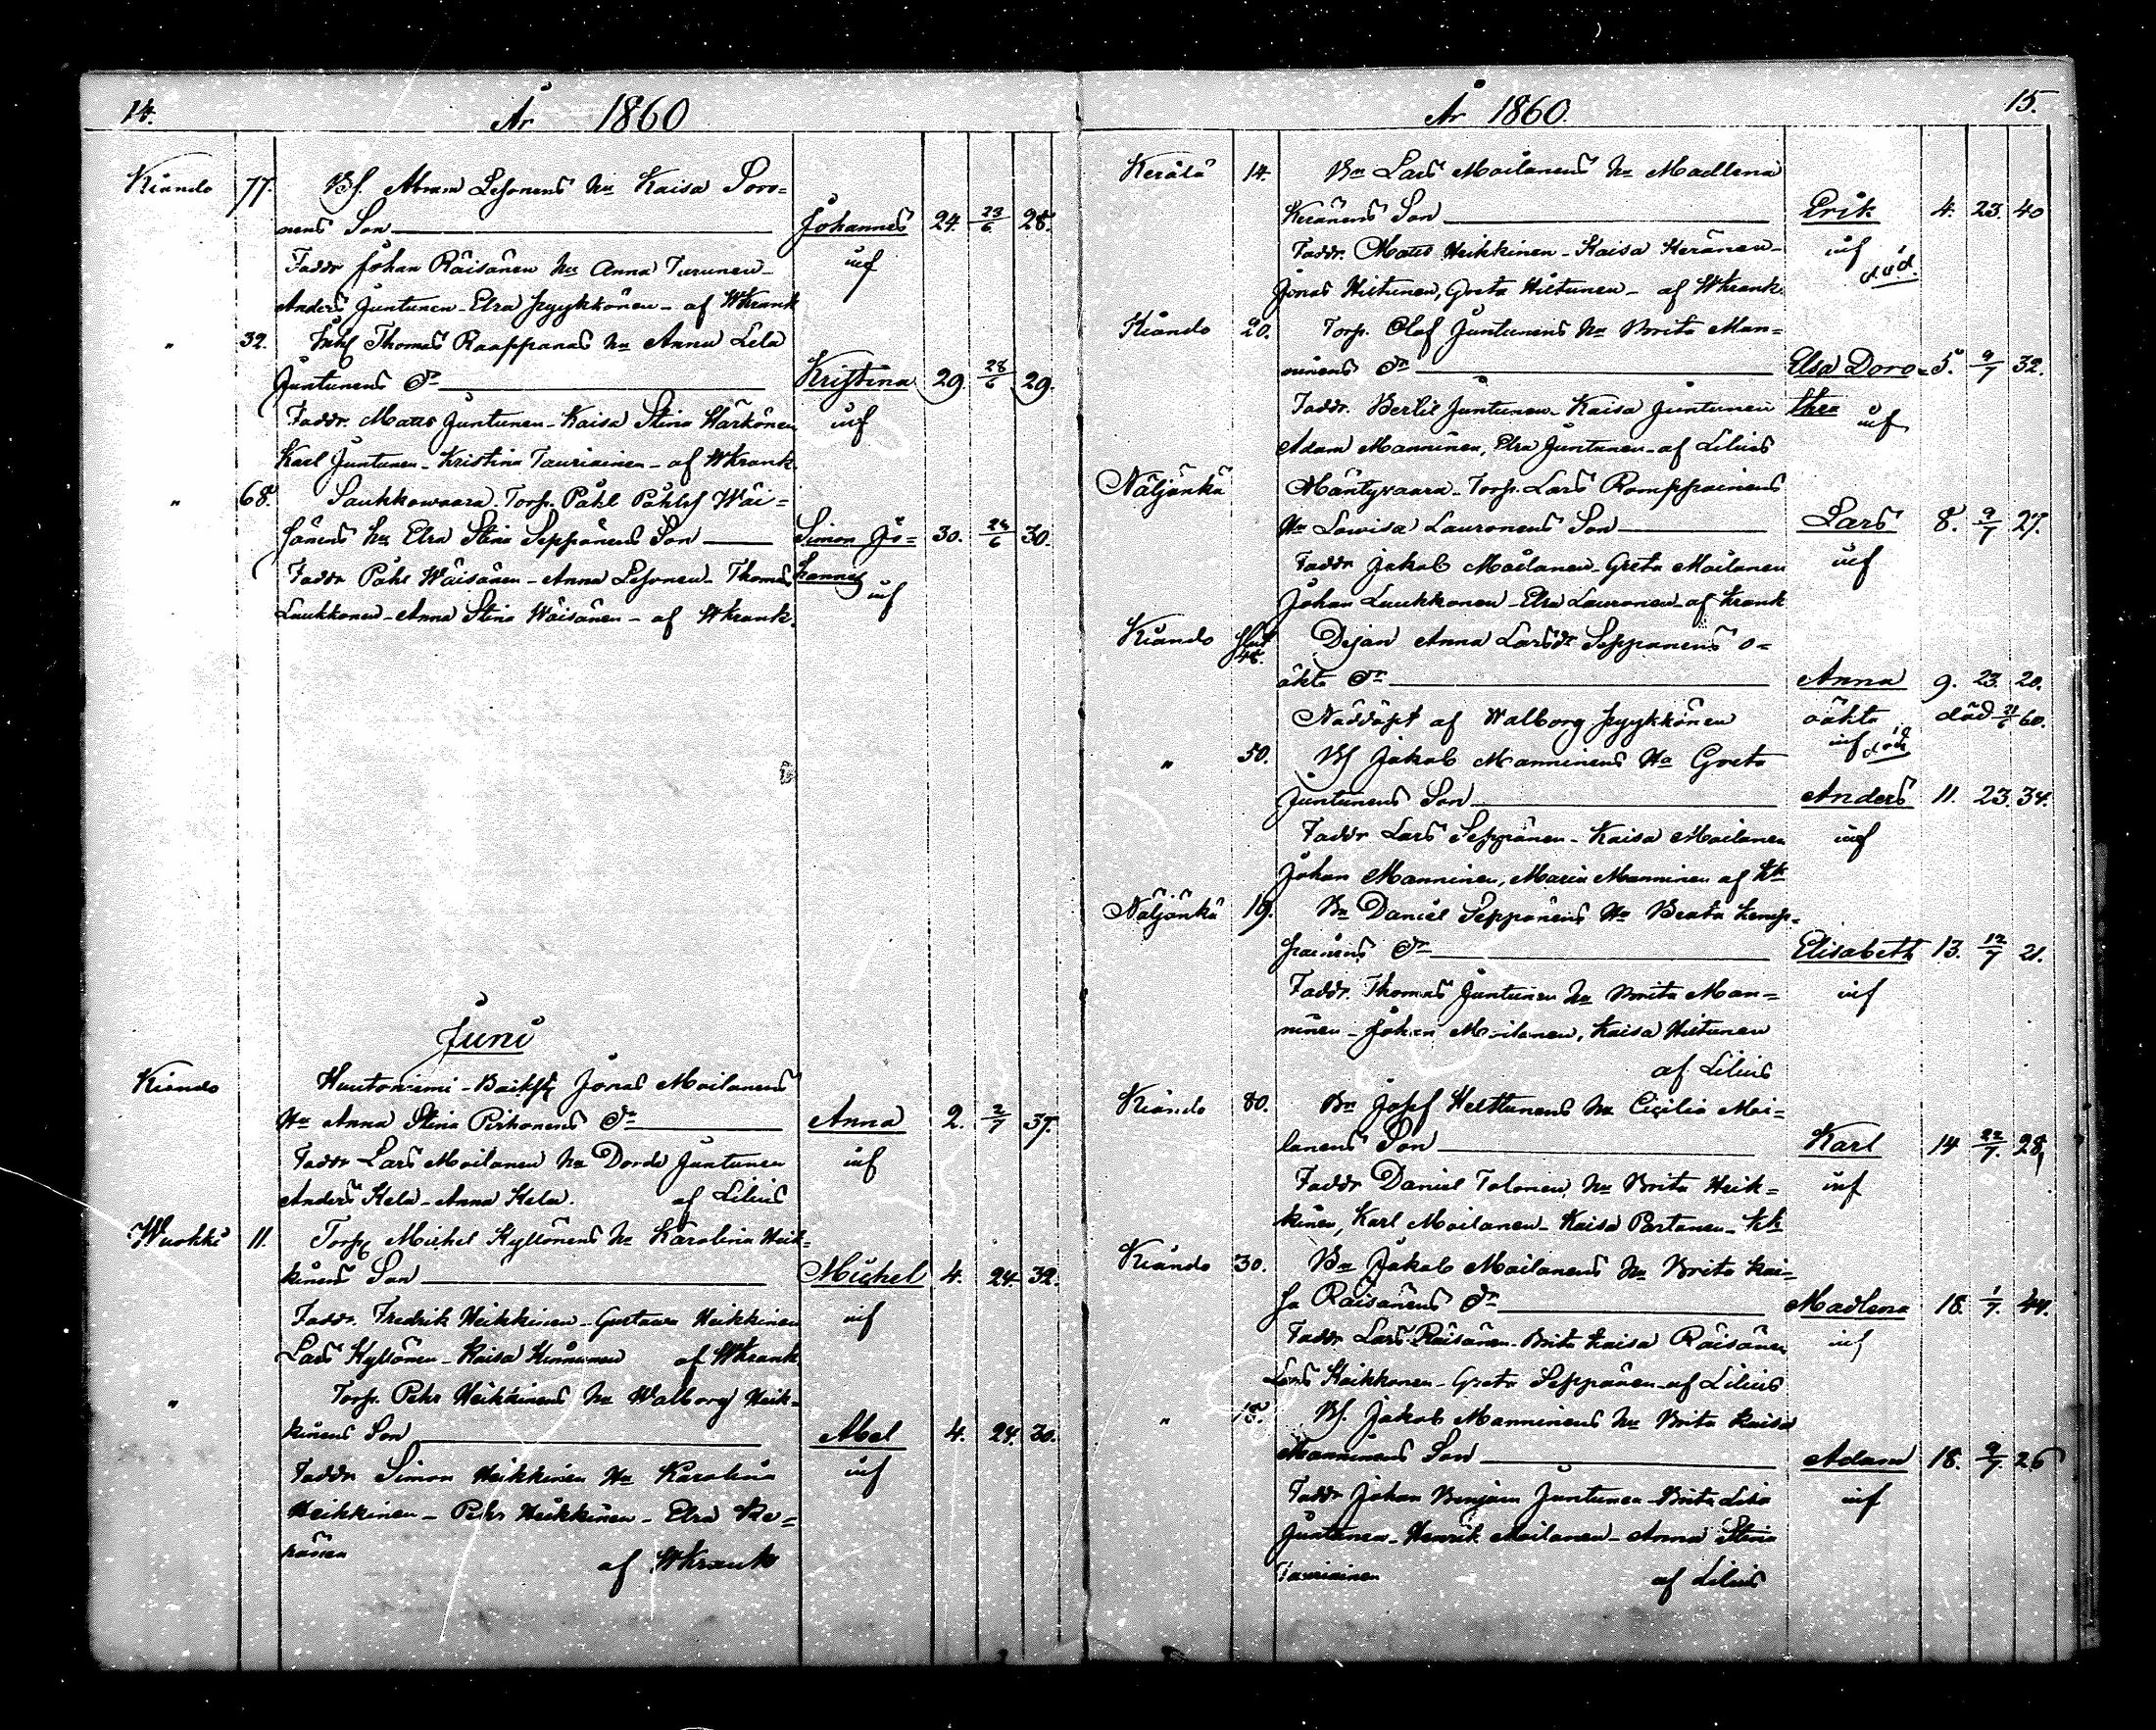 14.
År 1860
Kiando 77. Bf. Abram Lesonens hu Kaisa Soro=
nens Son Johannes 24. 23/6 28.
Faddr Johan Räisänen hu Anna Turunen inf
Anders Juntunen Elsa Pyykkönen af WKrank
" 32. Thomas Raappanas hu Anna Lela
Juntunens dr Kristina 29. 28/6 29.
Faddr. Matts Juntunen Kaisa Stina Härkönen inf
Karl Juntunen Kristina Tauriainen af WKrank
" 68. Saukkowaara Torp. Påhl Påhls Wäi=
sänens hu Elsa Stina Seppänens Son Simon Jo= 30. 24/6 30.
Faddr Påhl Wäisänen Anna Lesonen Thomas hannes
Laukkonen Anna Stina Wäisänen af WKrank. inf
Juni
Kiando Huutoniemi Jonas Moilanens
Hu Anna Stina Pirhonens dr Anna 2. 2/7 37.
Faddr Lars Moilanen hu Dorde Juntunen inf
Anders Kela Anna Kela. af Lilius
Wuokki 11. Torp. Michel Kyllönens hu Karolina Heik=
kinens Son Michel 4. 24. 32.
Faddr. Fredrik Heikkinen Gustawa Heikkinen inf
Lars Kyllönen Kaisa Kinnunen af WKrank
" Torp. Pehr Heikkinens hu Walborg Heik=
kinens Son Abel 4. 24. 30.
Faddr. Simon Heikkinen hu Karolina inf
Heikkinen Pehr Heikkinen Elsa Ke=
ränen af WKrank
År 1860 15.
Kerälä 14. Bn Lars Moilanens hu Madlena
Keränens Son Erik 4. 23. 40
Faddr. Matts Heikkinen Kaisa Keränen inf
död.
Jonas Hiltunen, Greta Hiltunen af WKrank.
Kiando 20. Torp. Olof Juntunens hu Brita Man=
ninens dr Elsa Doro= 5. 9/7 32.
Faddr. Bertil Juntunen Kaisa Juntunen thea inf
Adam Manninen, Elsa Juntunen af Lilius
Näljänkä Mäntyvaara Torp. Lars Romppainens
Hu Lowisa Lauronens Son Lars 8. 9/7 27.
Faddr Jakob Moilanen Greta Moilanen inf
Johan Luukkonen Elsa Lauronen af Krank
Kiando 48. Dejan Anna Larsdr Seppänens o=
äkta dr Anna 9. 23. 20.
Nöddöpt af Walborg Pyykkönen oäkta död 21/6 60.
inf död
" 50. Bf Jakob Manninens hu Greta
Juntunens Son Anders 11. 23. 34.
Faddr Lars Seppänen Kaisa Moilanen inf
Johan Manninen, Maria Manninen af Kk
Näljänkä 19. Bn Daniel Seppänens hu Beata Kemp=
painens dr Elisabeth 13. 12/7 21.
Faddr. Thomas Juntunen hu Brita Man= inf
ninen Johan Moilanen, Kaisa Hiltunen
af Lilius
Kiando 80. Bn Josef Helttunens hu Cicilia Moi=
lanens Son Karl 14 22/7 28,
Faddr Daniel Tolonen, hu Brita Heik= inf
kinen, Karl Moilanen Kaisa Partanen Kk
Kiando 30. Bn Jakob Moilanens hu Brita Kai=
sa Räisänens dr Madlena 18. 1/7 44.
Faddr. Lars Räisänen Brita Kaisa Räisänen inf
Lars Heikkonen Greta Seppänen af Lilius
" 15. Bf. Jakob Manninens hu Brita Kaisa
Manninens Son Adam 18. 9/7 26
Faddr Johan Benjam Juntunen Brita Lisa inf
Juntunen Henrik Moilanen Anna Stina
Tauriainen af Lilius